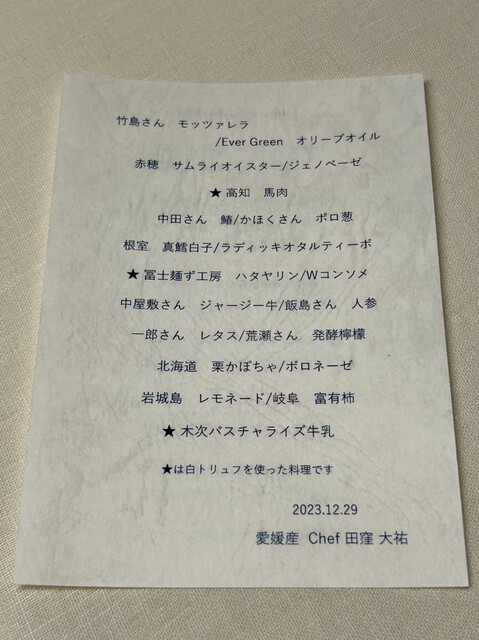 竹島さん モッツァレラ
/Ever Green オリーブオイル
赤穂 サムライオイスター/ジェノベーゼ
★高知 馬肉
中田さん 鰆/かほくさん ポロ葱
根室 真鱈白子/ラディッキオタルティーボ
★冨士麺ず工房 ハタヤリン/Wコンソメ
中屋敷さん ジャージー牛/飯島さん 人参
一郎さん レタス/荒瀬さん 発酵檸檬
北海道 栗かぼちゃ/ボロネーゼ
岩城島 レモネード/岐阜 富有柿
★木次パスチャライズ牛乳
★は白トリュフを使った料理です
2023.12.29
愛媛産 Chef 田窪 大祐